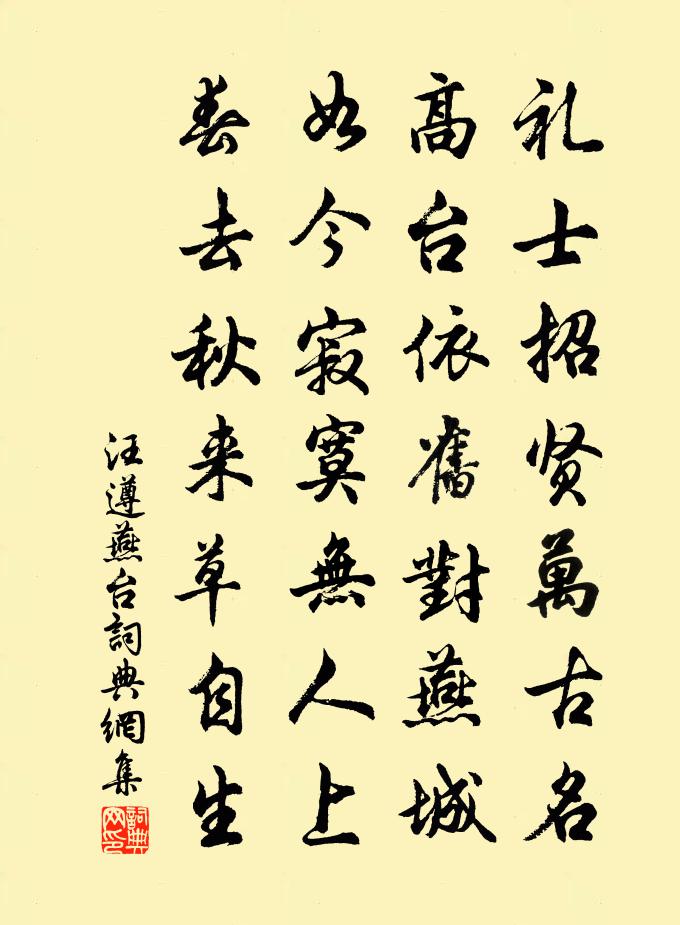 礼士招贤萬古名
高台依舊對燕城
如今寂寞無人上
春去秋来草自生
汪遵燕台詞典網集
詞典网印